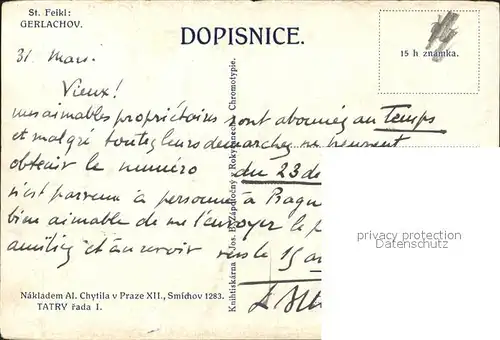 St. Feikl:
GERLACHOV.
DOPISNICE.
15 h známka.
31 Mars.
Vieux!
mes aimables propriétaires sont abonnés au Temps
et malgré toutes leurs démarches ne peuvent
obtenir le numéro du 23 de
n'est parvenu à personne à Prague
bien aimable de me l'envoyer le p
amitiés et au revoir vers le 15
Knihtiskárna Jos. B. Zápotočný v Rokycanech. Chromotypie.
privacy protection
Datenschutz
Nákladem Al. Chytila v Praze XII., Smíchov 1283.
TATRY řada I.